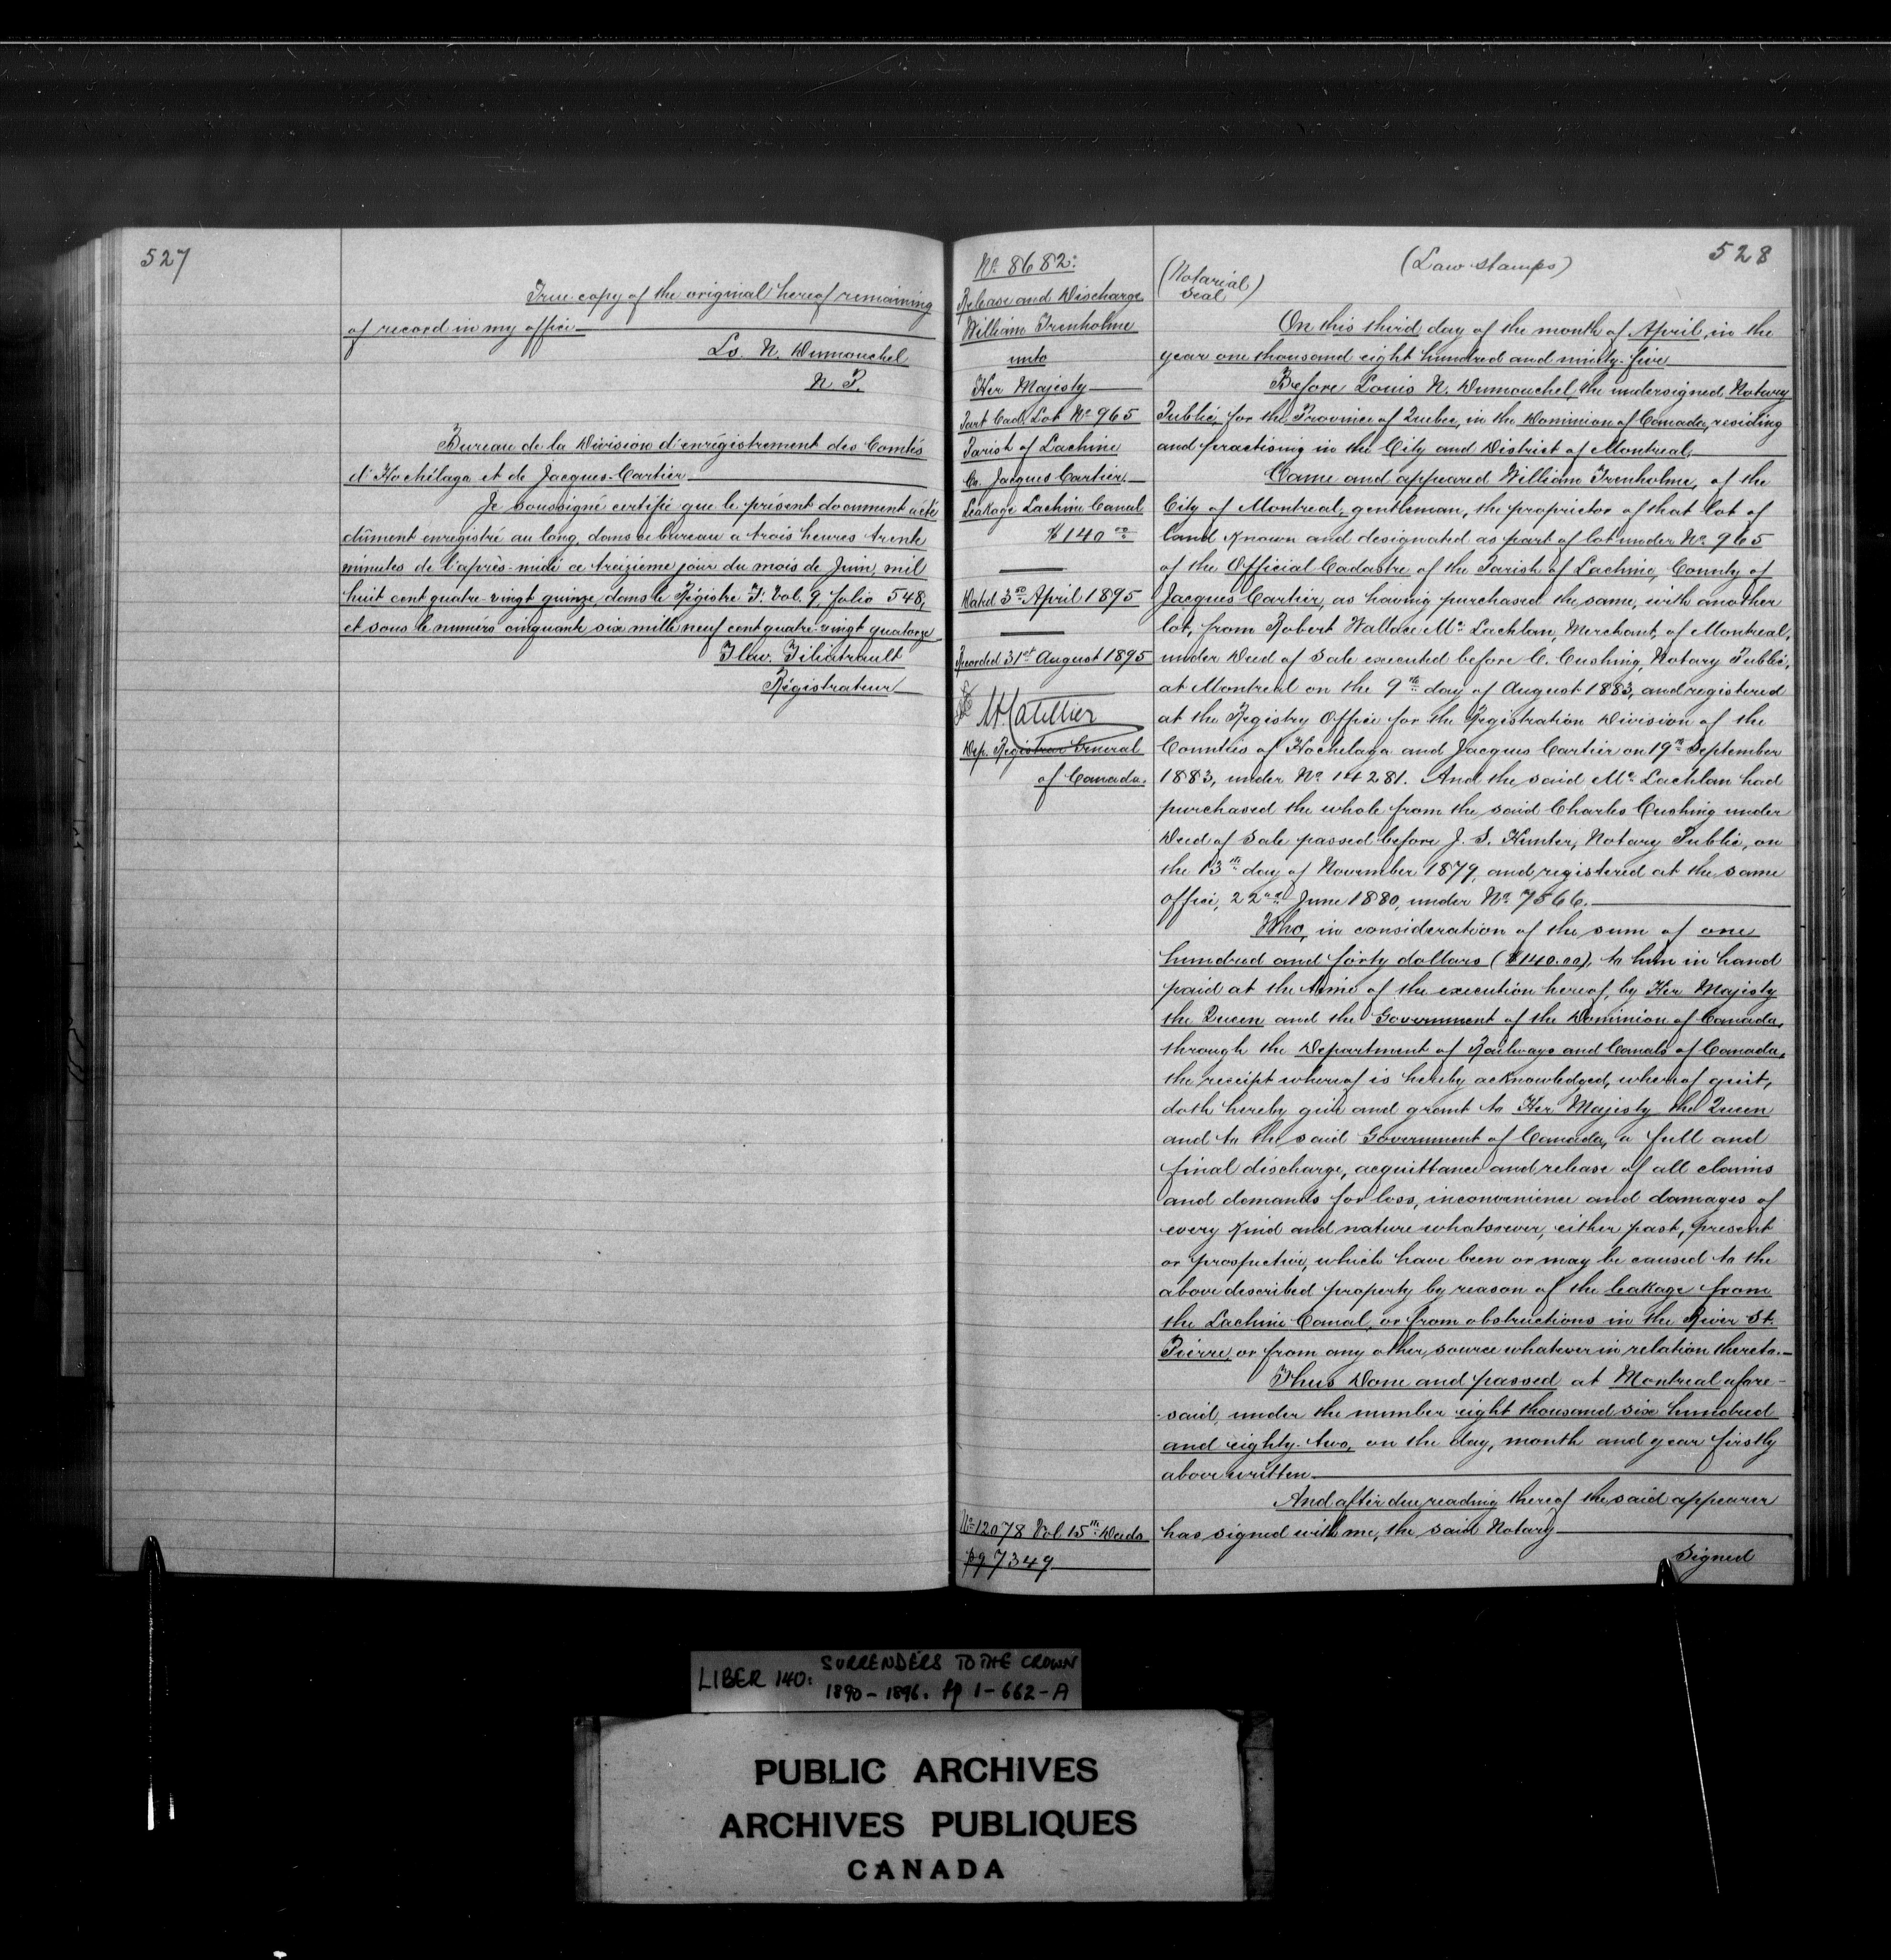 527
True copy of the original hereof remaining
of record in my office
Ls. N. Dumouchel
N. P.
Bureau de la Division d'enrégistrement des Comtés
d'Hochélaga et de Jacques-Cartier
Je soussigné certifie que le présent document a été
dûment enregistré au long, dans ce bureau a trois heures trente
minutes de l'après-midi ce treizième jour du mois de Juin, mil
huit cent quatre-vingt quinze, dans le Régistre F. Vol. 9, folio 548,
et sous le numéro cinquante six mille neuf cent quatre-vingt quatorze
Flav. Filiatrault
Régistrateur
No. 8682.
Release and Discharge
William Trenholme
unto
Her Majesty
Part Cad. Lot No. 965
Parish of Lachine
Co. Jacques Cartier
Leakage Lachine Canal
$140.00
Dated 3rd April 1895
Recorded 31st August 1895
Dep. Registrar General
of Canada.
No. 12078 Vol 15th Deeds
pg 7349
528
(Law stamps)
(Notarial
Seal)
On this third day of the month of April, in the
year one thousand eight hundred and ninety-five
Before Louis N. Dumouchel, the undersigned Notary
Public, for the Province of Quebec, in the Dominion of Canada, residing
and practising in the City and District of Montreal,
Came and appeared William Trenholme, of the
City of Montreal, gentleman, the proprietor of that lot of
land known and designated as part of lot under No. 965
of the Official Cadastre of the Parish of Lachine, County of
Jacques Cartier, as having purchased the same, with another
lot, from Robert Wallace Mc Lachlan, Merchant, of Montreal,
under Deed of Sale executed before C. Cushing, Notary Public,
at Montreal on the 9th day of August 1883, and registered
at the Registry Office for the Registration Division of the
Counties of Hochelaga and Jacques Cartier on 19th September
1883, under No. 14281. And the said Mc Lachlan had
purchased the whole from the said Charles Cushing under
Deed of Sale passed before J. S. Hunter, Notary Public, on
the 13th day of November 1879, and registered at the same
office, 22nd June 1880, under No. 7566.
Who, in consideration of the sum of one
hundred and forty dollars ($140.00), to him in hand
paid at the time of the execution hereof, by Her Majesty
the Queen and the Government of the Dominion of Canada,
through the Department of Railways and Canals of Canada,
the receipt whereof is hereby acknowledged, whereof quit,
doth hereby give and grant to Her Majesty the Queen
and to the said Government of Canada, a full and
final discharge, acquittance and release of all claims
and demands for loss, inconvenience and damages of
every kind and nature whatsoever, either past, present
or prospective, which have been or may be caused to the
above described property by reason of the leakage from
the Lachine Canal, or from obstructions in the River St.
Pierre, or from any other source whatever in relation thereto.
Thus Done and passed at Montreal afore-
-said, under the number eight thousand six hundred
and eighty-two, on the day, month and year firstly
above written
And after due reading thereof the said appearer
has signed with me, the said Notary
Signed
LIBER 140: SURRENDERS TO THE CROWN
1890-1896. pp 1-662-A
PUBLIC ARCHIVES
ARCHIVES PUBLIQUES
CANADA